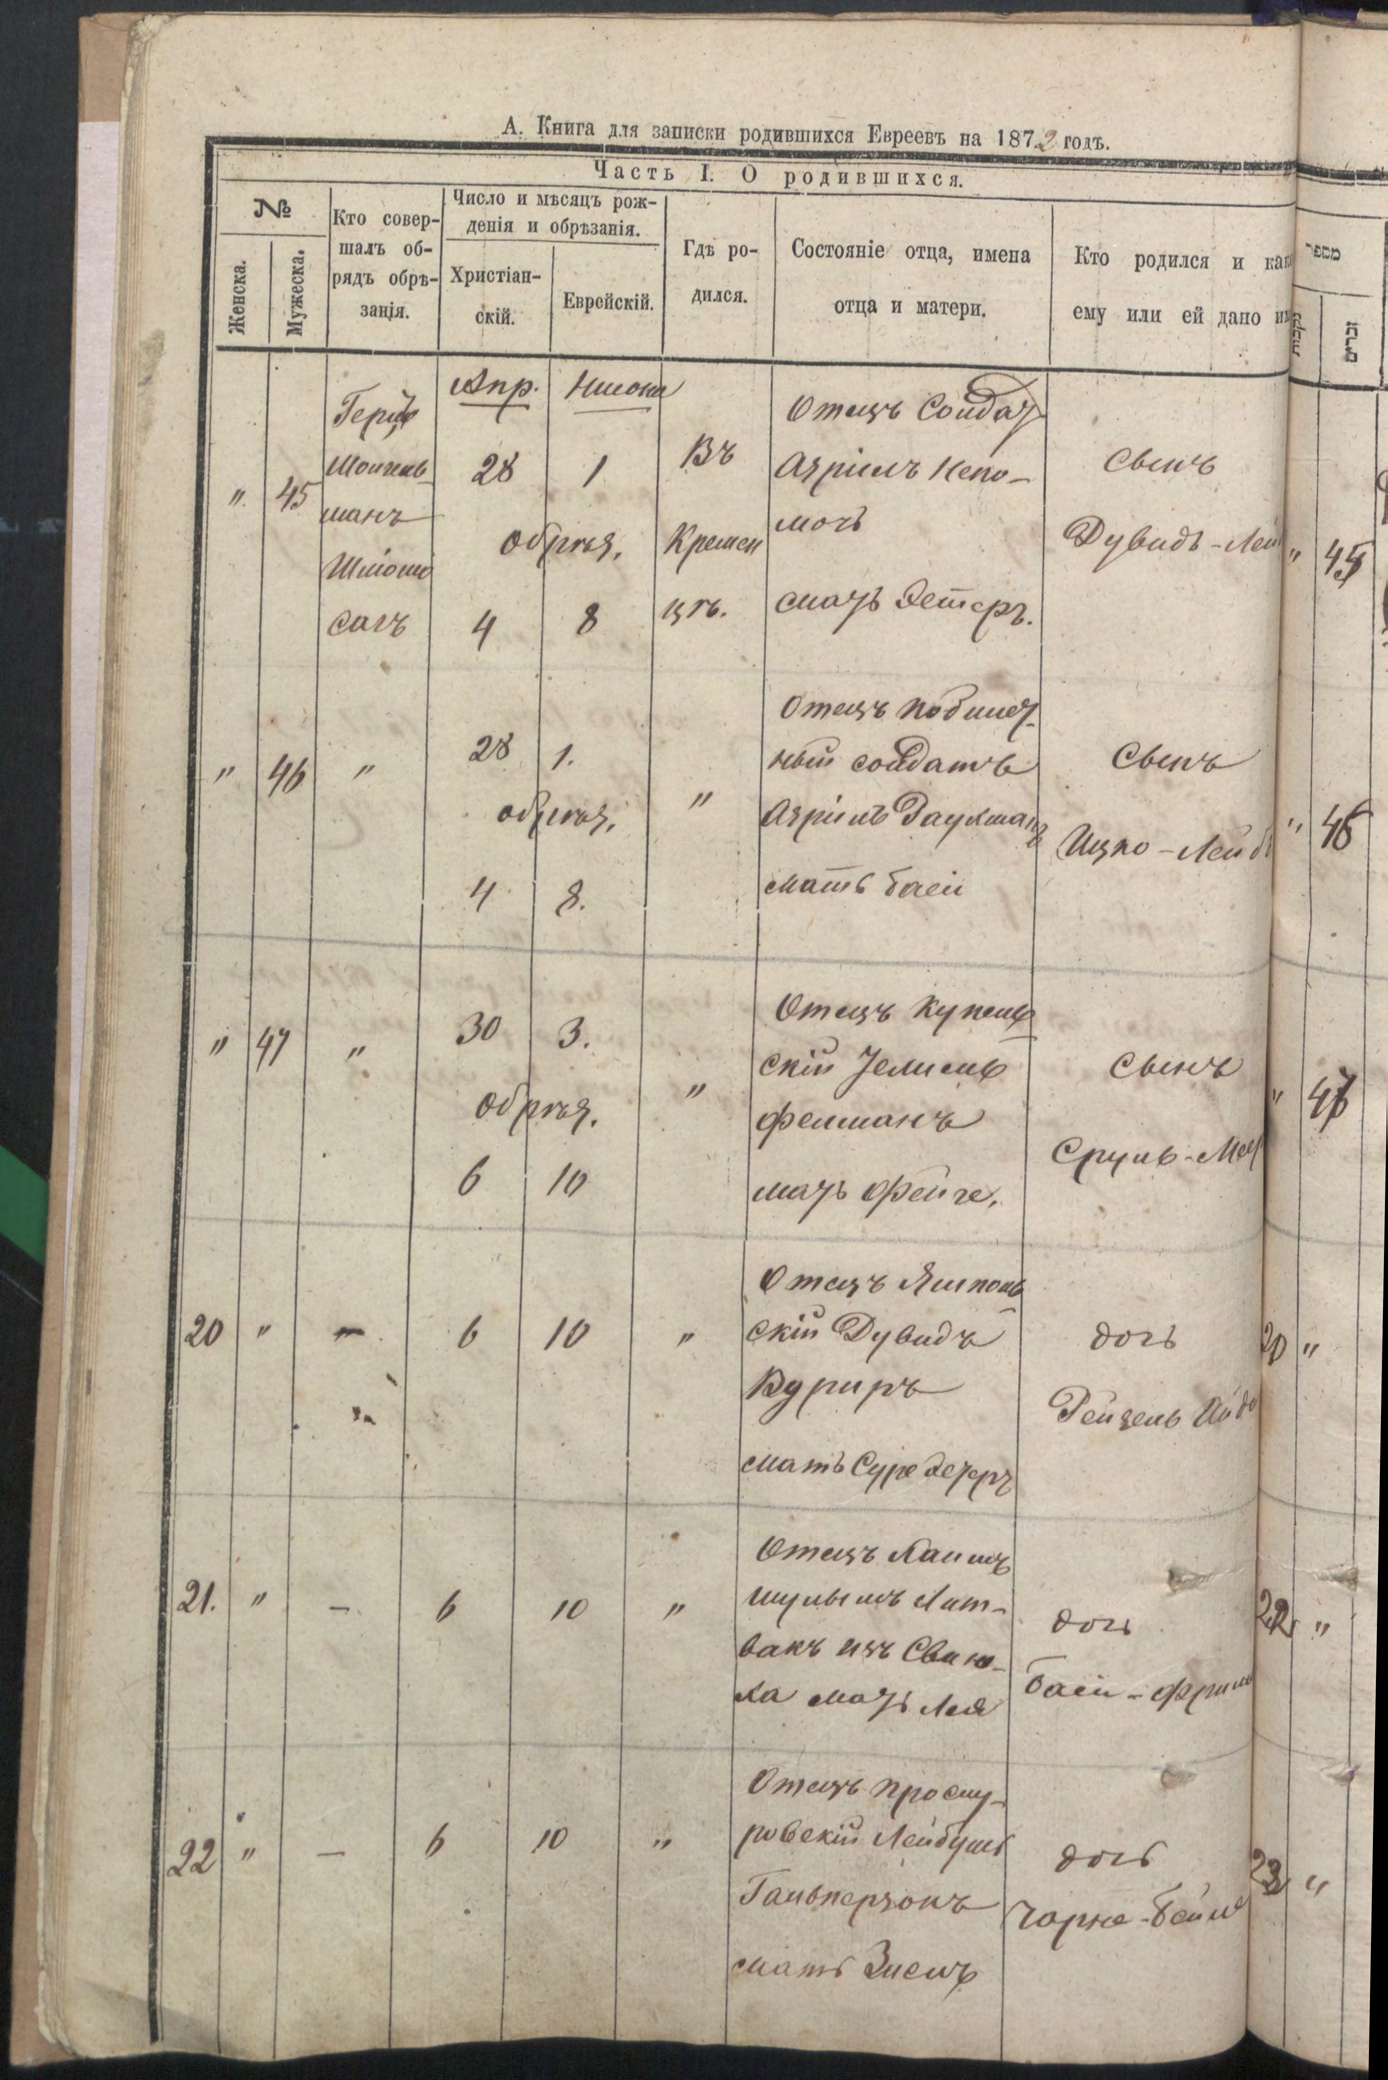 А. Книга для записки родившихся Евреевъ на 1872 годъ.
Часть I. О родившихся.
№
Женска.
Мужеска.
Кто совер-
шалъ об-
рядъ обрѣ-
занія.
Число и мѣсяцъ рож-
денія и обрѣзанія.
Христіан-
скій.
Еврейскій.
Гдѣ ро-
дился.
Состояніе отца, имена
отца и матери.
Кто родился и како
ему или ей дано им
מספר
זכרים
" 45
Герш
шанъ
Апр. Нисона
28 1
обрѣз.
4 8
Въ
Кремен
цѣ.
Отецъ Солдат
Азріилъ Непо-
мочь
мать Эстеръ.
Сынъ
Дувидъ-Лей
" 45
" 46 "
28 1.
обрѣз.
4 8.
"
Отецъ
ный солдатъ
Азріилъ Заухманъ
мать Басіи
Сынъ
Ицко-Лейб
" 46
" 47 "
30 3.
обрѣз.
6 10
"
Отецъ Купель
скій
Фелманъ
мать Фейге.
Сынъ
Сруль-Мей
" 47
20 " - 6 10 "
Отецъ Ямполь
скій Дувидъ
мать Суре Эстеръ
дочь
Рейзель
20 "
21. " - 6 10 "
Отецъ Хаимъ
Шулимъ Лит-
вакъ изъ Свиню-
ха мать Лея
дочь
Басіи-Фрим
22 "
22 " - 6 10 "
Отецъ Проску-
ровскій Лейбушъ
Гальперзонъ
мать Зислъ
дочь
Чарне-Бейле
23 "